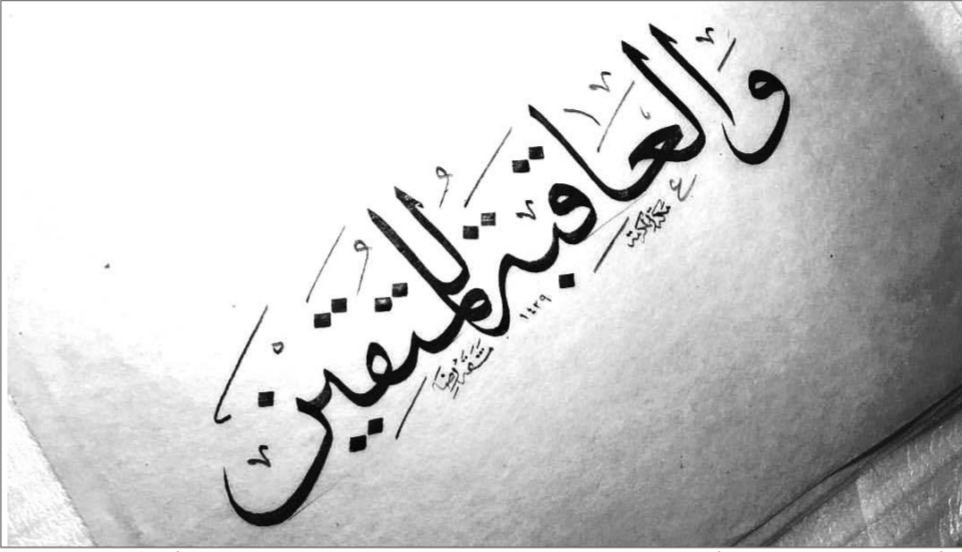 والعاقبة للمتقين
١٤٣٩